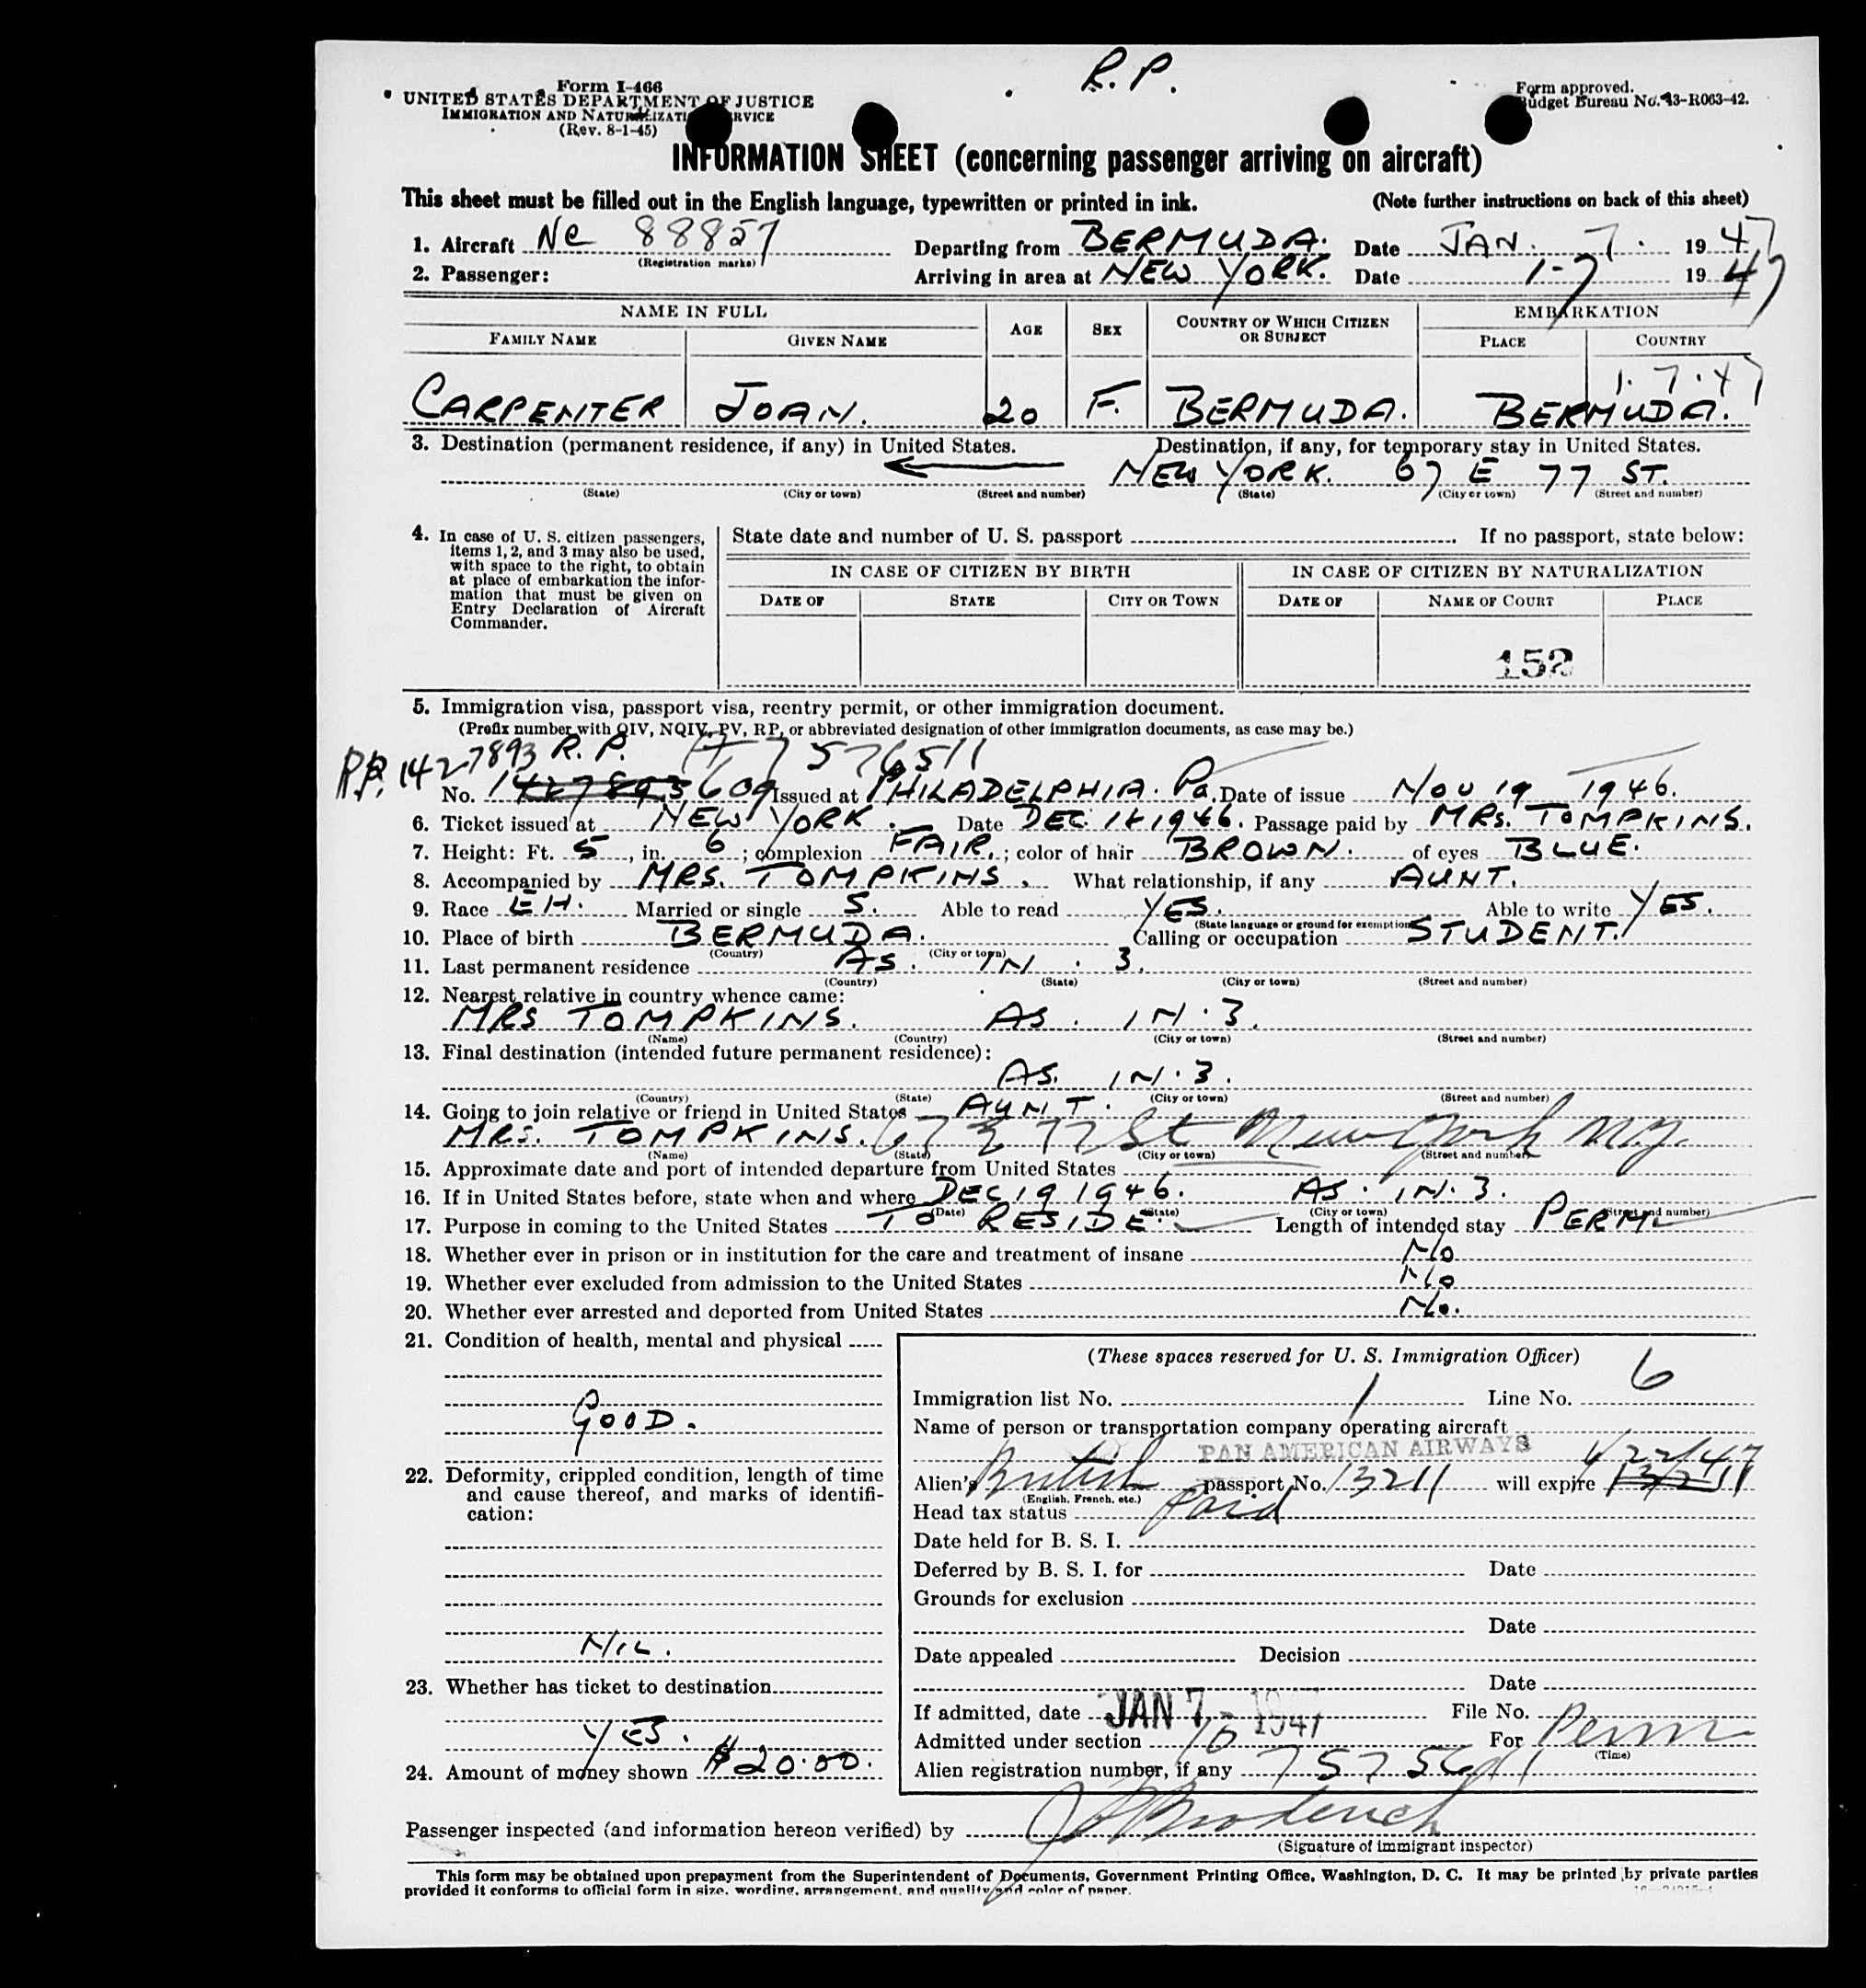 R.P.
Form I-466
UNITED STATES DEPARTMENT OF JUSTICE
IMMIGRATION AND NATURALIZATION SERVICE
(Rev. 8-1-45)
Form approved.
Budget Bureau No. 43-R063-42.
INFORMATION SHEET (concerning passenger arriving on aircraft)
This sheet must be filled out in the English language, typewritten or printed in ink. (Note further instructions on back of this sheet)
1. Aircraft NC 88857 Departing from BERMUDA. Date JAN. 7. 1947
(Registration marks)
2. Passenger: Arriving in area at NEW YORK. Date 1-7 1947
NAME IN FULL AGE SEX COUNTRY OF WHICH CITIZEN OR SUBJECT EMBARKATION
FAMILY NAME GIVEN NAME PLACE COUNTRY
1.7.47
CARPENTER JOAN. 20 F. BERMUDA. BERMUDA.
3. Destination (permanent residence, if any) in United States. Destination, if any, for temporary stay in United States.
NEW YORK. 67 E 77 ST.
(State) (City or town) (Street and number) (State) (City or town) (Street and number)
4. In case of U. S. citizen passengers, items 1, 2, and 3 may also be used, with space to the right, to obtain at place of embarkation the information that must be given on Entry Declaration of Aircraft Commander.
State date and number of U. S. passport If no passport, state below:
IN CASE OF CITIZEN BY BIRTH IN CASE OF CITIZEN BY NATURALIZATION
DATE OF STATE CITY OR TOWN DATE OF NAME OF COURT PLACE
152
5. Immigration visa, passport visa, reentry permit, or other immigration document.
(Prefix number with QIV, NQIV, PV, RP, or abbreviated designation of other immigration documents, as case may be.)
R.P. 1427893 R.P. 7576511
No. 1427893 609 Issued at PHILADELPHIA. Pa. Date of issue NOV 19 1946.
6. Ticket issued at NEW YORK. Date DEC 1946. Passage paid by MRS. TOMPKINS.
7. Height: Ft. 5, in. 6; complexion FAIR.; color of hair BROWN. of eyes BLUE.
8. Accompanied by MRS. TOMPKINS. What relationship, if any AUNT.
9. Race EH. Married or single S. Able to read YES. Able to write YES.
(State language or ground for exemption)
10. Place of birth BERMUDA. Calling or occupation STUDENT.
(Country) (City or town)
11. Last permanent residence AS. IN. 3.
(Country) (State) (City or town) (Street and number)
12. Nearest relative in country whence came:
MRS TOMPKINS. AS. IN. 3.
(Name) (Country) (City or town) (Street and number)
13. Final destination (intended future permanent residence):
AS. IN. 3.
(Country) (State) (City or town) (Street and number)
14. Going to join relative or friend in United States AUNT.
MRS. TOMPKINS. 67 E 77 St New York N.Y.
(Name) (State) (City or town) (Street and number)
15. Approximate date and port of intended departure from United States
16. If in United States before, state when and where DEC 19 1946. AS. IN. 3.
(Date) (State) (City or town) (Street and number)
17. Purpose in coming to the United States TO RESIDE. Length of intended stay PERM.
18. Whether ever in prison or in institution for the care and treatment of insane No
19. Whether ever excluded from admission to the United States No
20. Whether ever arrested and deported from United States No.
21. Condition of health, mental and physical
GOOD.
22. Deformity, crippled condition, length of time and cause thereof, and marks of identification:
NIL.
23. Whether has ticket to destination
YES.
24. Amount of money shown $20.00.
(These spaces reserved for U. S. Immigration Officer)
Immigration list No. 1 Line No. 6
Name of person or transportation company operating aircraft
PAN AMERICAN AIRWAYS
Alien's British passport No. 13211 will expire 1/22/47 13211
(English, French, etc.)
Head tax status Paid
Date held for B. S. I.
Deferred by B. S. I. for Date
Grounds for exclusion
Date
Date appealed Decision
Date
If admitted, date JAN 7 - 1947 File No.
Admitted under section 10 For Perm
(Time)
Alien registration number, if any
Passenger inspected (and information hereon verified) by
(Signature of immigrant inspector)
This form may be obtained upon prepayment from the Superintendent of Documents, Government Printing Office, Washington, D. C. It may be printed by private parties
provided it conforms to official form in size, wording, arrangement, and quality and color of paper.